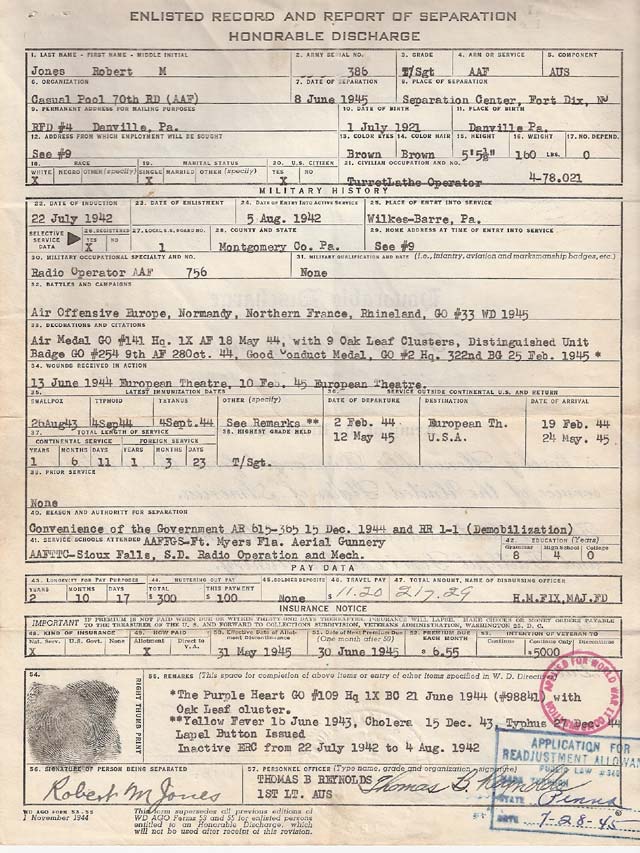 ENLISTED RECORD AND REPORT OF SEPARATION
HONORABLE DISCHARGE
1. LAST NAME - FIRST NAME - MIDDLE INITIAL 2. ARMY SERIAL NO. 3. GRADE 4. ARM OR SERVICE 5. COMPONENT
Jones Robert M 386 T/Sgt AAF AUS
6. ORGANIZATION 7. DATE OF SEPARATION 8. PLACE OF SEPARATION
Casual Pool 70th RD (AAF) 8 June 1945 Separation Center, Fort Dix, NJ
9. PERMANENT ADDRESS FOR MAILING PURPOSES 10. DATE OF BIRTH 11. PLACE OF BIRTH
RFD #4 Danville, Pa. 1 July 1921 Danville Pa.
12. ADDRESS FROM WHICH EMPLOYMENT WILL BE SOUGHT 13. COLOR EYES 14. COLOR HAIR 15. HEIGHT 16. WEIGHT 17. NO. DEPEND.
See #9 Brown Brown 5'5½" 160 LBS. 0
18. RACE 19. MARITAL STATUS 20. U.S. CITIZEN 21. CIVILIAN OCCUPATION AND NO.
WHITE NEGRO OTHER (specify) SINGLE MARRIED OTHER (specify) YES NO
X X X TurretLathe Operator 4-78.021
MILITARY HISTORY
22. DATE OF INDUCTION 23. DATE OF ENLISTMENT 24. DATE OF ENTRY INTO ACTIVE SERVICE 25. PLACE OF ENTRY INTO SERVICE
22 July 1942 5 Aug. 1942 Wilkes-Barre, Pa.
SELECTIVE SERVICE DATA 26. REGISTERED YES NO 27. LOCAL S.S. BOARD NO. 28. COUNTY AND STATE 29. HOME ADDRESS AT TIME OF ENTRY INTO SERVICE
X 1 Montgomery Co. Pa. See #9
30. MILITARY OCCUPATIONAL SPECIALTY AND NO. 31. MILITARY QUALIFICATION AND DATE (i.e., infantry, aviation and marksmanship badges, etc.)
Radio Operator AAF 756 None
32. BATTLES AND CAMPAIGNS
Air Offensive Europe, Normandy, Northern France, Rhineland, GO #33 WD 1945
33. DECORATIONS AND CITATIONS
Air Medal GO #141 Hq. 1X AF 18 May 44, with 9 Oak Leaf Clusters, Distinguished Unit
Badge GO #254 9th AF 28Oct. 44, Good Conduct Medal, GO #2 Hq. 322nd BG 25 Feb. 1945 *
34. WOUNDS RECEIVED IN ACTION
13 June 1944 European Theatre, 10 Feb. 45 European Theatre.
35. LATEST IMMUNIZATION DATES 36. SERVICE OUTSIDE CONTINENTAL U.S. AND RETURN
SMALLPOX TYPHOID TETANUS OTHER (specify) DATE OF DEPARTURE DESTINATION DATE OF ARRIVAL
26Aug43 4Sep44 4Sept.44 See Remarks ** 2 Feb. 44 European Th. 19 Feb. 44
37. TOTAL LENGTH OF SERVICE 38. HIGHEST GRADE HELD 12 May 45 U.S.A. 24 May. 45
CONTINENTAL SERVICE FOREIGN SERVICE
YEARS MONTHS DAYS YEARS MONTHS DAYS
1 6 11 1 3 23 T/Sgt.
39. PRIOR SERVICE
None
40. REASON AND AUTHORITY FOR SEPARATION
Convenience of the Government AR 615-365 15 Dec. 1944 and RR 1-1 (Demobilization)
41. SERVICE SCHOOLS ATTENDED AAFFGS-Ft. Myers Fla. Aerial Gunnery 42. EDUCATION (Years)
Grammar High School College
AAFTTC-Sioux Falls, S.D. Radio Operation and Mech. 8 4 0
PAY DATA
43. LONGEVITY FOR PAY PURPOSES 44. MUSTERING OUT PAY 45. SOLDIER DEPOSITS 46. TRAVEL PAY 47. TOTAL AMOUNT, NAME OF DISBURSING OFFICER
YEARS MONTHS DAYS TOTAL THIS PAYMENT
2 10 17 $ 300 $ 100 None $ 11.20 217.29 H.M.FIX,MAJ.FD
INSURANCE NOTICE
IMPORTANT IF PREMIUM IS NOT PAID WHEN DUE OR WITHIN THIRTY-ONE DAYS THEREAFTER, INSURANCE WILL LAPSE. MAKE CHECKS OR MONEY ORDERS PAYABLE
TO THE TREASURER OF THE U. S. AND FORWARD TO COLLECTIONS SUBDIVISION, VETERANS ADMINISTRATION, WASHINGTON 25, D. C.
48. KIND OF INSURANCE 49. HOW PAID 50. Effective Date of Allotment Discontinuance 51. Date of Next Premium Due (One month after 50) 52. PREMIUM DUE EACH MONTH 53. INTENTION OF VETERAN TO
Nat. Serv. U.S. Govt. None Allotment Direct to V.A. Continue Continue Only Discontinue
X X 31 May 1945 30 June 1945 $ 6.55 X $5000
54. RIGHT THUMB PRINT 55. REMARKS (This space for completion of above items or entry of other items specified in W. D. Directives)
*The Purple Heart GO #109 Hq 1X BC 21 June 1944 (#98841) with
Oak Leaf cluster.
**Yellow Fever 16 June 1943, Cholera 15 Dec. 43, Typhus 27 Dec. 44
Lapel Button Issued
Inactive ERC from 22 July 1942 to 4 Aug. 1942
APPLIED FOR WORLD WAR II
APPLICATION FOR
READJUSTMENT ALLOWAN
PUBLIC LAW #346
STATE Penna
DATE 7-28-45
56. SIGNATURE OF PERSON BEING SEPARATED 57. PERSONNEL OFFICER (Type name, grade and organization - signature)
Robert M Jones THOMAS B REYNOLDS Thomas B. Reynolds
1ST LT. AUS
WD AGO FORM 53-55
1 November 1944
This form supersedes all previous editions of
WD AGO Forms 53 and 55 for enlisted persons
entitled to an Honorable Discharge, which
will not be used after receipt of this revision.